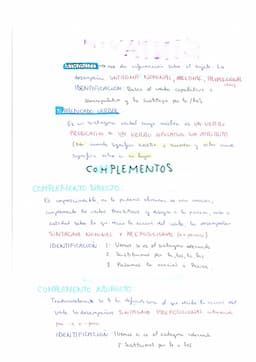 nos da información sobre el sujeto. Lo
desempeña SINTAGMA NOMINAL, ADJETIVAL, PREPOSICIONAL
IDENTIFICACIÓN: Busco el verbo copulativo o
semicopulativo y lo sustituyo por lo
PREDICADO VERBAL
Es un sintagma verbal cuyo núcleo es UN VERBO
PREDICATIVO o UN VERBO COPULATIVO SIN ATRIBUTO
significa existir o suceder y estar cuando
significa estar en un lugar
COMPLEMENTOS
COMPLEMENTO DIRECTO:
Es imprescindible, no lo podemos eliminar de una oración,
complementa los verbos transitivos y designa a la persona, cosa o
entidad sobre la que recae la acción del verbo. Lo desempeñan
SINTAGMA NOMINAL Y PREPOSICIONAL
IDENTIFICACIÓN 1: Vemos si es el sintagma
2: Sustituimos por lo, la, los, las
3: Pasamos la oración a Pasiva
COMPLEMENTO INDIRECTO:
Tradicionalmente se le ha definido como el que recibe la acción del
verbo. Lo desempeñan SINTAGMA PREPOSICIONAL introducido
por a o para
IDENTIFICACIÓN 1: Vemos si es el sintagma
2: Sustituimos por le o les